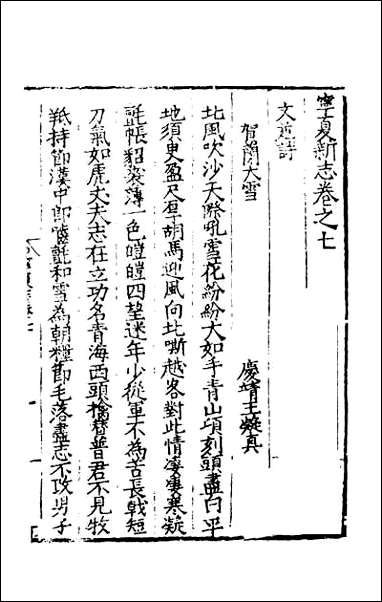 寧夏新志卷之七
文並詩
賀蘭大雪 慶靖王凝真
北風吹沙天際吼雪花紛紛大如手青山頃刻頭盡白平
地須臾盈尺厚胡馬迎風向北嘶越客對此情凄凄寒凝
氈帳貂裘薄一色皚皚四望迷年少從軍不為苦長戟短
刀氣如虎丈夫志在立功名青海西頭擒贊普君不見牧
羝持節漢中郎嚙氈和雪為朝糧節毛落盡志不改男子